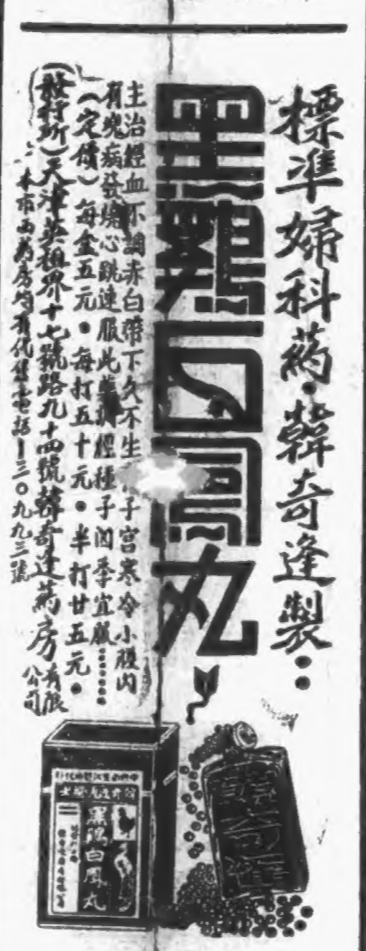 標準婦科葯·韓奇逢製：
黑鷄白鳳丸
主治經血不調赤白帶下久不生 子宮寒冷小腹內
有塊病發燒心跳速服此葯調經種子四季宜服……
（定價）每盒五元·每打五十元·半打廿五元·
（發行所）天津英租界十七號路九十四號韓奇逢葯房有限公司
本市西葯房均有代售電話—三〇九九三號
黑鷄白鳳丸
韓奇逢